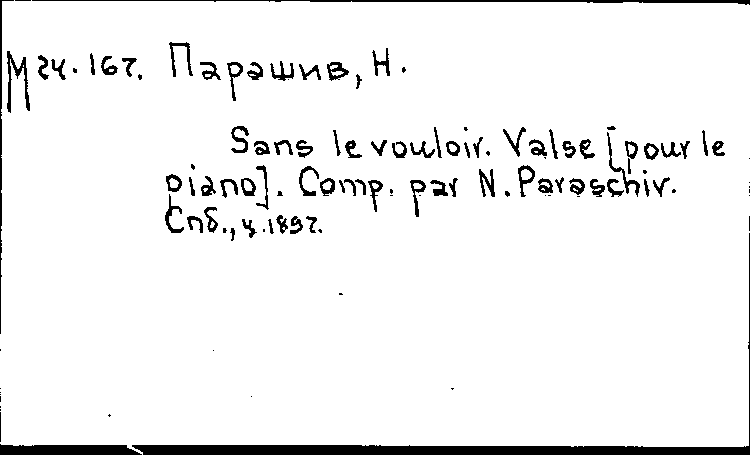 М24.167. Парашив, Н.
Sans le vouloir. Valse [pour le
piano]. Comp. par N. Paraschiv.
Спб., ц.1897.